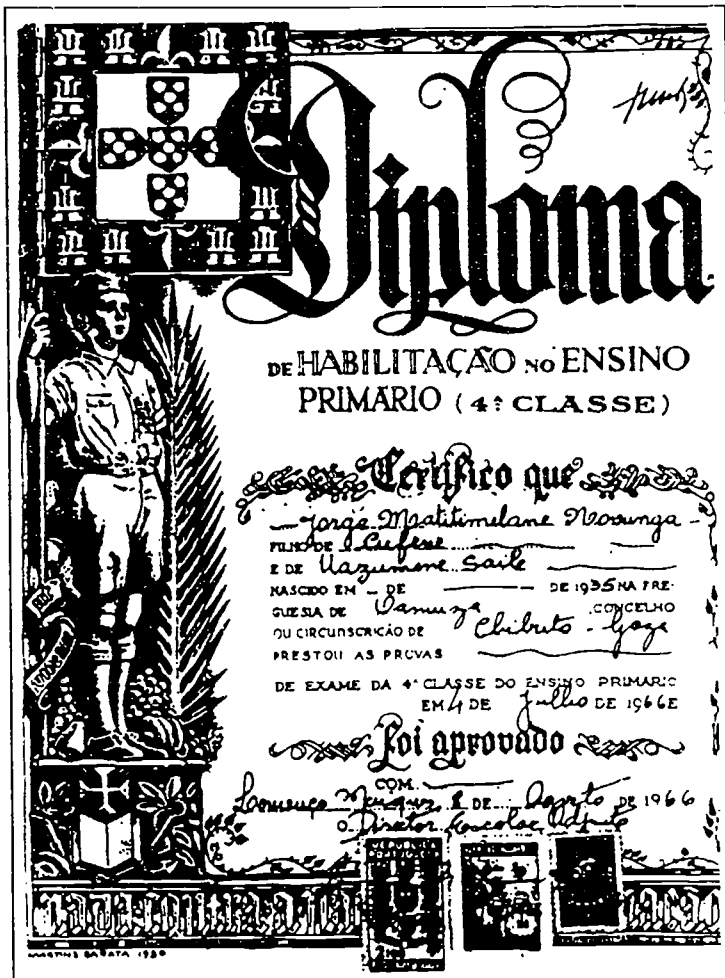 Diploma
DE HABILITAÇÃO NO ENSINO
PRIMÁRIO (4ª CLASSE)
Certifico que
Jorge Matitimelane
FILHO DE
E DE Uazumene Saile
NASCIDO EM — DE — DE 1935 NA FRE-
GUESIA DE CONCELHO
OU CIRCUNSCRIÇÃO DE Chibuto - Gaza
PRESTOU AS PROVAS
DE EXAME DA 4ª CLASSE DO ENSINO PRIMARIO
EM 4 DE Julho DE 1966 E
Foi aprovado
COM.
Lourenço Marques DE Agosto DE 1966
O Diretor Escolar
MARTINS BARATA 1950